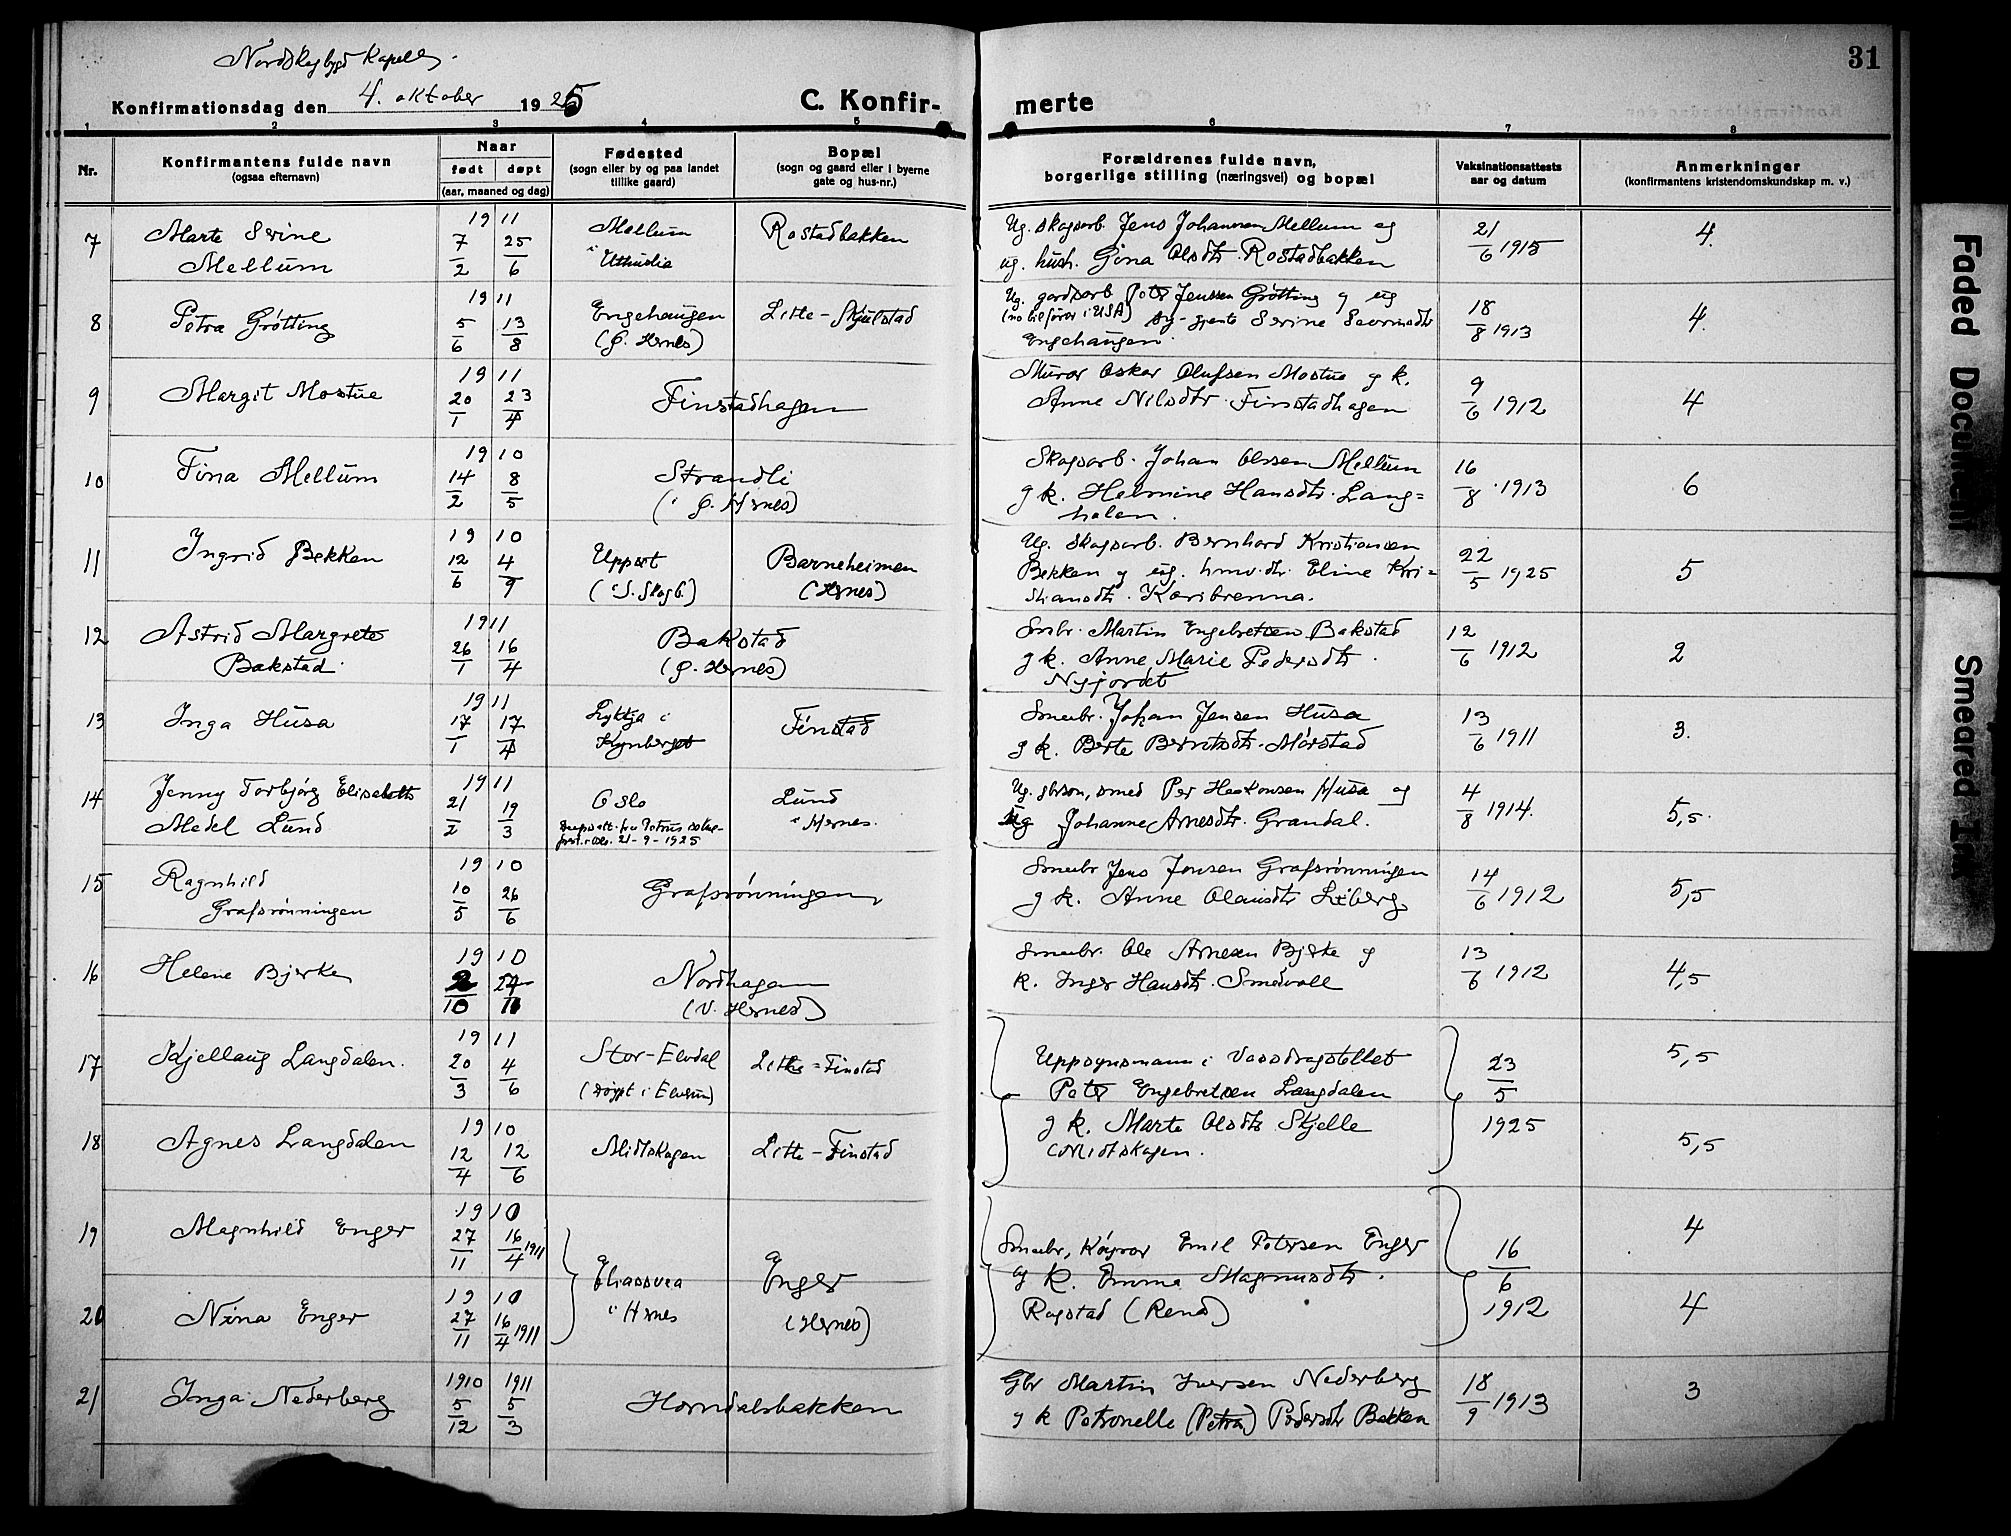 31
Nordskogbygd Kapell.
Konfirmationsdag den 4. oktober 1925
C. Konfir-
merte
1 2 3 4 5 6 7 8
Nr.
Konfirmantens fulde navn
(ogsaa efternavn)
Naar
født døpt
(aar, maaned og dag)
Fødested
(sogn eller by og paa landet
tillike gaard)
Bopæl
(sogn og gaard eller i byerne
gate og hus-nr.)
Forældrenes fulde navn,
borgerlige stilling (næringsvei) og bopæl
Vaksinationsattests
aar og datum
Anmerkninger
(konfirmantens kristendomskundskap m. v.)
7 Marte Serine
Mellum
1911
7/2 25/6
Mellum
i Uthuslia
Rostadbakken
Ug. skogsarb. Jens Johannesen Mellum og
ug. hush. Gina Olsdtr. Rostadbakken
21/6 1915
4.
8 Petra Grøtting
1911
5/6 13/8
Engehaugen
(Ø. Hernes)
Litle-Skjulstad
Ug. gardsarb. Peter Jenssen Grøtting og ug
(no bilfører i USA) sy-gjente Serine
Engehaugen
18/8 1913
4.
9 Margit Mostue
1911
20/1 23/4
Finstadhagen
Murar Oskar Olufsen Mostue og k.
Anne Nilsdtr. Finstadhagen
9/6 1912
4
10 Tina Mellum
1910
14/2 8/5
Strandli
(i Ø. Hernes)
Skogsarb. Johan Olssen Mellum
og k. Helmine Hansdtr. Lang=
holen.
16/8 1913
6
11 Ingrid Bekken
1910
12/6 4/9
Uppset
(i S. Skogb.)
Barneheimen
(Hernes)
Ug. skogsarb. Bernhard Kristiansen
Bekken og ug. hmv. dtr. Eline Kri=
stiansdtr. Karibrenna.
22/5 1925
5
12 Astrid Margrete
Bakstad
1911
26/1 16/4
Bakstad
(Ø. Hernes)
Smbr. Martin Engebretsen Bakstad
og k. Anne Marie Pedersdtr.
Nyjordet
12/6 1912
2
13 Inga Husa
1911
17/1 17/4
Lykkja i
Kynberget
Finstad
Smbr. Johan Jensen Husa
og k. Berte Berntsdtr. Mørstad
13/6 1911
3.
14 Jenny Torbjørg Elisabeth
Medel Lund
1911
21/2 19/3
Oslo
21-9-1925
Lund
i Hernes.
Ug. gbrson, smed Per Haakonsen Husa og
ug Johanne Arnesdtr. Grandal.
4/8 1914.
5,5
15 Ragnhild
Grafsrønningen
1910
10/5 26/6
Grafsrønningen
Smbr Jens Jonsen Grafsrønningen
og k. Anne Olausdtr Liberg
14/6 1912
5,5
16 Helene Bjerke
1910
2/10 27/11
Nordhagen
(V. Hernes)
Smbr. Ole Arnesen Bjerke og
k. Inger Hansdtr. Smedvoll
13/6 1912
4,5
17 Kjellaug Langdalen.
1911
20/3 4/6
Stor-Elvdal
(døypt i Elverum)
Litle-Finstad
Uppsynsmann i Vassdragstellet
Peter Engebretsen Langdalen
og k. Marte Olsdtr Skjelle
Midtskogen.
23/5
1925
5,5
18 Agnes Langdalen
1910
12/4 12/6
Midtskogen
Litle-Finstad
5,5
19 Magnhild Enger
1910
27/11 16/4 1911
Eliassvea
i Hernes
Enger
(Hernes)
Smbr, Køyrar Emil Petersen Enger
og k. Emma Magnusdtr.
Rogstad (Rena)
16/6
1912
4
20 Nina Enger
1910
27/11 16/4 1911
4
21 Inga Nederberg
1910 1911
5/12 5/3
Horndalsbakken
Gbr Martin Iversen Nederberg
og k Petronelle (Petra) Pedersdtr Bakken
18/9 1913
3
Faded Document
Smeared Ink